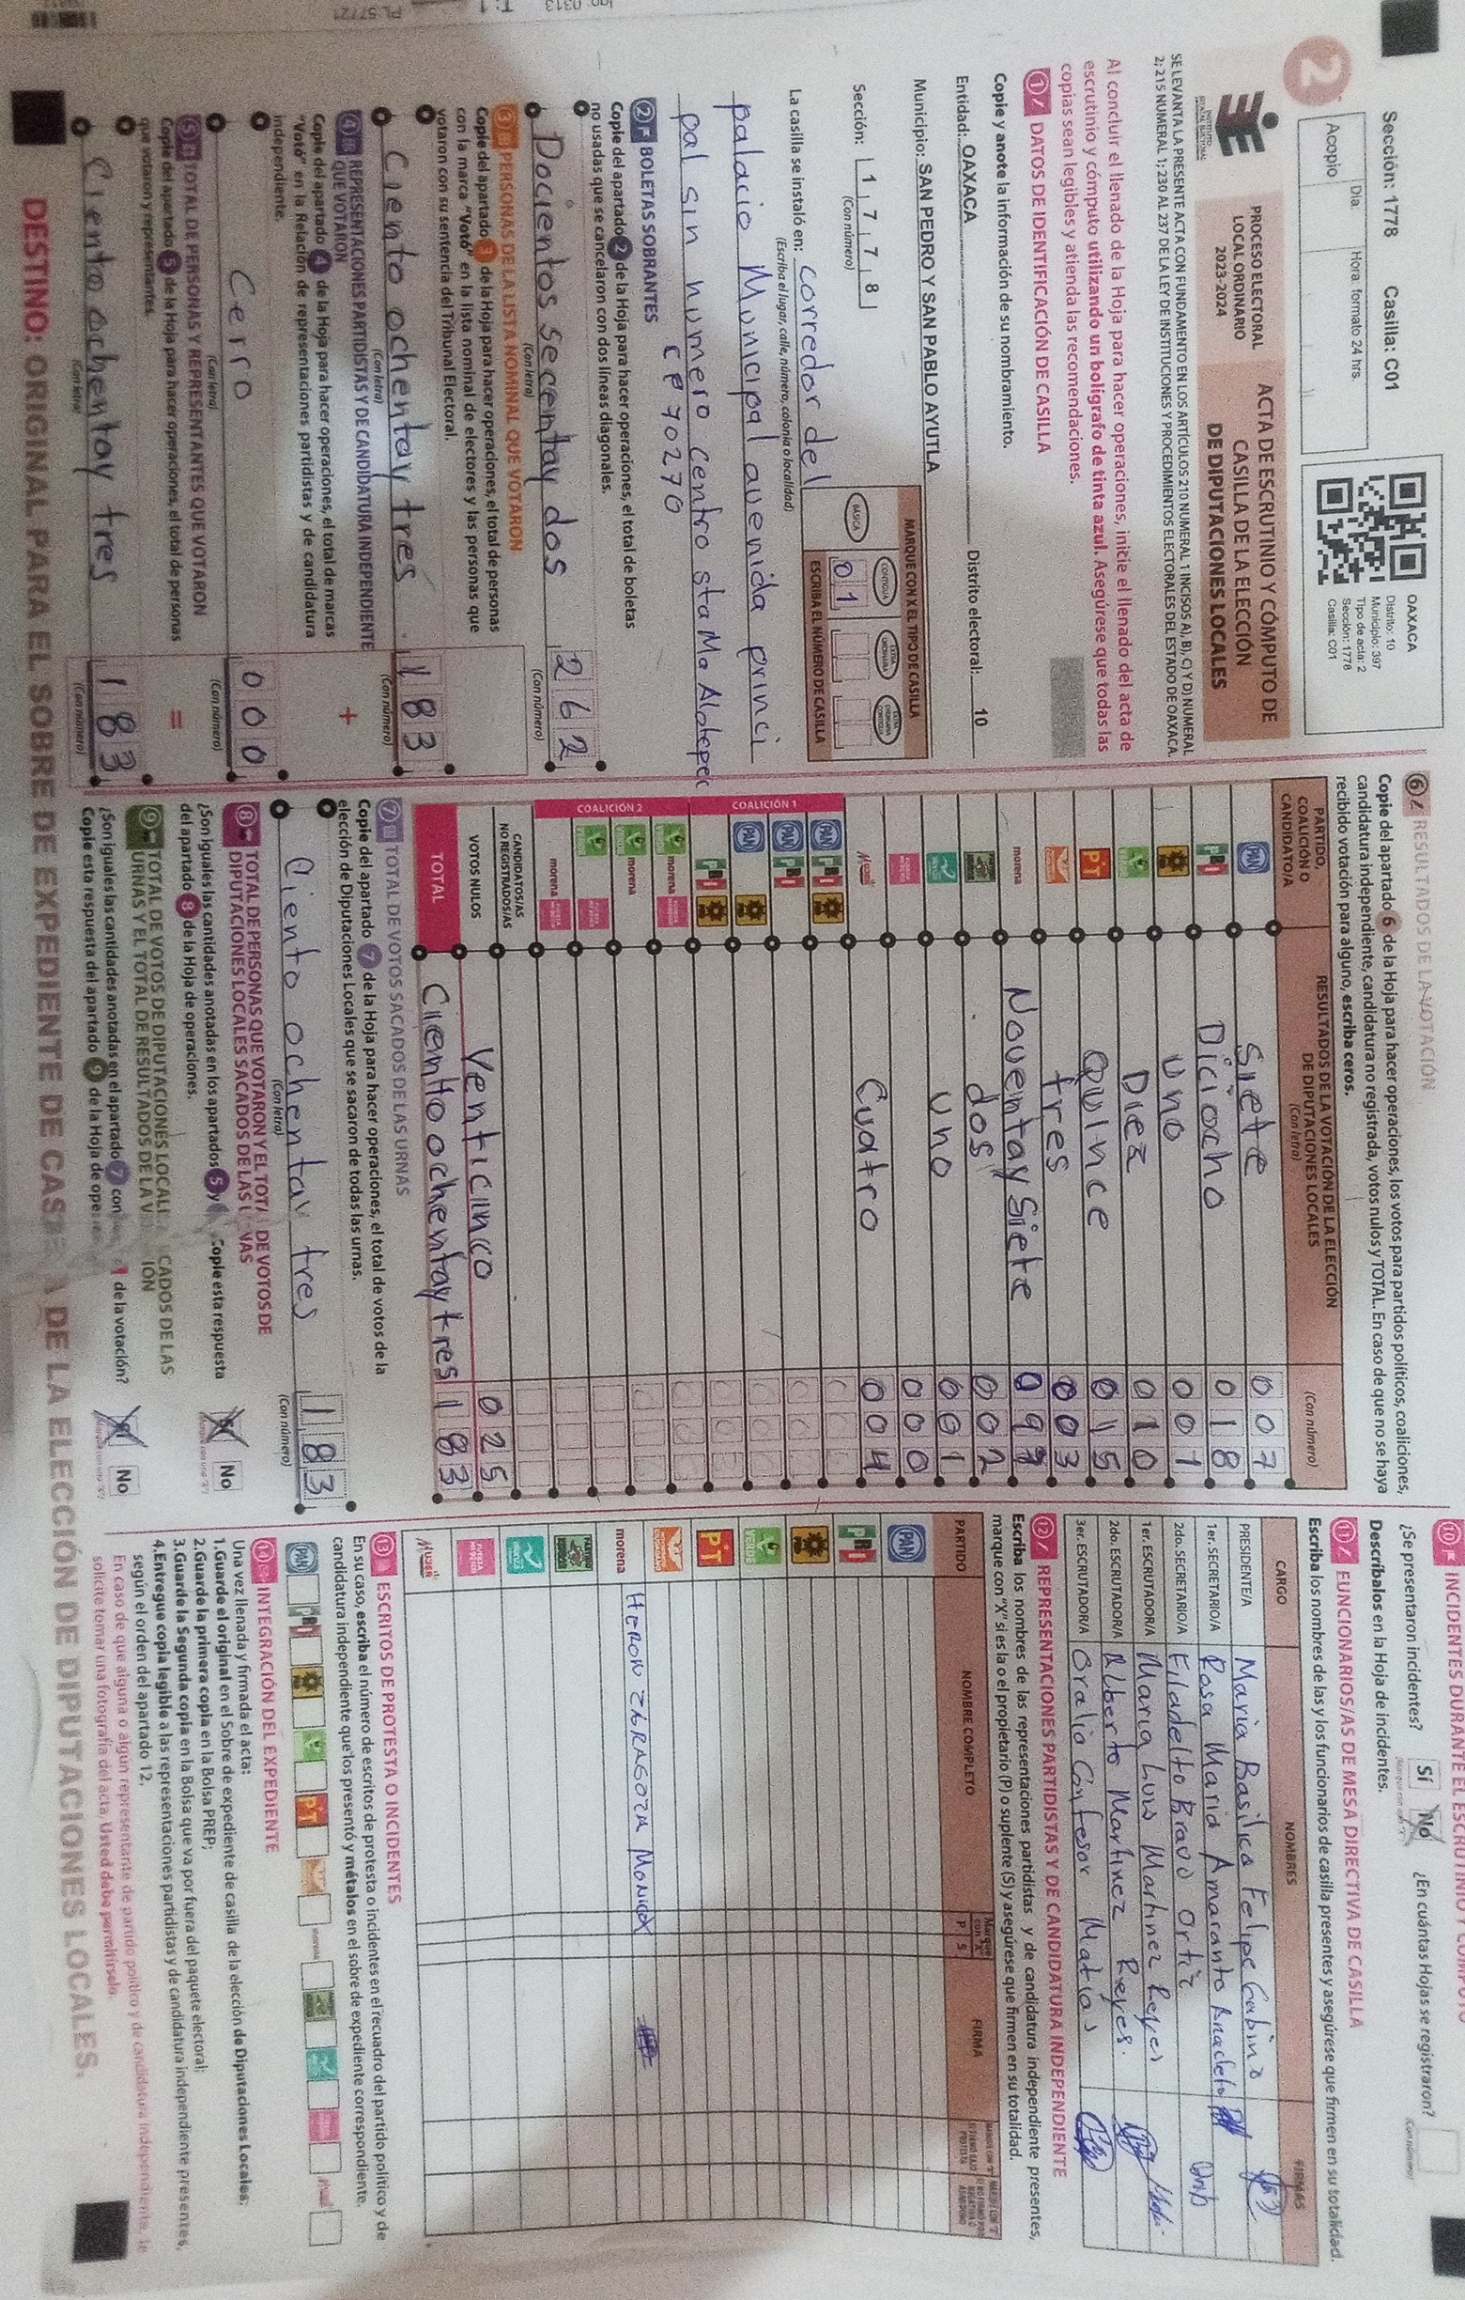 Sección: 1778 Casilla: C01
Día: Hora: formato 24 hrs.
Acopio
2
OAXACA
Distrito: 10
Municipio: 397
Tipo de acta: 2
Sección: 1778
Casilla: C01
INSTITUTO
PROCESO ELECTORAL
LOCAL ORDINARIO
2023-2024
ACTA DE ESCRUTINIO Y CÓMPUTO DE
CASILLA DE LA ELECCIÓN
DE DIPUTACIONES LOCALES
SE LEVANTA LA PRESENTE ACTA CON FUNDAMENTO EN LOS ARTÍCULOS 210 NUMERAL 1 INCISOS A), B), C) Y D) NUMERAL
2; 215 NUMERAL 1; 230 AL 237 DE LA LEY DE INSTITUCIONES Y PROCEDIMIENTOS ELECTORALES DEL ESTADO DE OAXACA.
Al concluir el llenado de la Hoja para hacer operaciones, inicie el llenado del acta de
escrutinio y cómputo utilizando un bolígrafo de tinta azul. Asegúrese que todas las
copias sean legibles y atienda las recomendaciones.
1 DATOS DE IDENTIFICACIÓN DE CASILLA
Copie y anote la información de su nombramiento.
Entidad: OAXACA Distrito electoral: 10
Municipio: SAN PEDRO Y SAN PABLO AYUTLA
Sección: 1 7 7 8
(Con número)
MARQUE CON X EL TIPO DE CASILLA
BÁSICA CONTIGUA
ESCRIBA EL NÚMERO DE CASILLA
0 1
La casilla se instaló en: corredor del
(Escriba el lugar, calle, número, colonia o localidad)
palacio Municipal avenida princi
pal sin número centro sta Ma Alotepec
CP 70270
2 BOLETAS SOBRANTES
Copie del apartado 2 de la Hoja para hacer operaciones, el total de boletas
no usadas que se cancelaron con dos líneas diagonales.
Docientos secentay dos 262
(Con letra) (Con número)
3 PERSONAS DE LA LISTA NOMINAL QUE VOTARON
Copie del apartado 3 de la Hoja para hacer operaciones, el total de personas
con la marca "Votó" en la lista nominal de electores y las personas que
votaron con su sentencia del Tribunal Electoral.
ciento ochentay tres. 183
(Con letra) (Con número)
4 REPRESENTACIONES PARTIDISTAS Y DE CANDIDATURA INDEPENDIENTE
QUE VOTARON
+
Copie del apartado 4 de la Hoja para hacer operaciones, el total de marcas
"Votó" en la Relación de representaciones partidistas y de candidatura
independiente.
cerro 000
(Con letra) (Con número)
5 TOTAL DE PERSONAS Y REPRESENTANTES QUE VOTARON
=
Copie del apartado 5 de la Hoja para hacer operaciones, el total de personas
que votaron y representantes.
Ciento ochentay tres 183
(Con letra) (Con número)
6 RESULTADOS DE LA VOTACIÓN
Copie del apartado 6 de la Hoja para hacer operaciones, los votos para partidos políticos, coaliciones,
candidatura independiente, candidatura no registrada, votos nulos y TOTAL. En caso de que no se haya
recibido votación para alguno, escriba ceros.
PARTIDO,
COALICIÓN O
CANDIDATO/A
RESULTADOS DE LA VOTACIÓN DE LA ELECCIÓN
DE DIPUTACIONES LOCALES
(Con letra) (Con número)
PAN Siete 007
PRI Diciocho 018
Uno 001
Diez 010
PT Quince 015
tres 003
morena Noventaysiete 097
dos 002
uno 001
000
Mujer Cuatro 004
COALICIÓN 1
PAN PRI
PAN PRI
PAN
PRI
COALICIÓN 2
morena
morena
morena
CANDIDATOS/AS
NO REGISTRADOS/AS
VOTOS NULOS Venticinco 025
TOTAL Ciento ochentay tres 183
7 TOTAL DE VOTOS SACADOS DE LAS URNAS
Copie del apartado 7 de la Hoja para hacer operaciones, el total de votos de la
elección de Diputaciones Locales que se sacaron de todas las urnas.
Ciento ochentay tres 183
(Con letra) (Con número)
8 TOTAL DE PERSONAS QUE VOTARON Y EL TOTAL DE VOTOS DE
DIPUTACIONES LOCALES SACADOS DE LAS URNAS
¿Son iguales las cantidades anotadas en los apartados 5 y Copie esta respuesta
del apartado 8 de la Hoja de operaciones.
Sí No
9 TOTAL DE VOTOS DE DIPUTACIONES LOCALES SACADOS DE LAS
URNAS Y EL TOTAL DE RESULTADOS DE LA VOTACIÓN
¿Son iguales las cantidades anotadas en el apartado 7 con de la votación?
Copie esta respuesta del apartado 9 de la Hoja de
Sí No
10 INCIDENTES DURANTE EL ESCRUTINIO Y CÓMPUTO
¿Se presentaron incidentes? Sí No ¿En cuántas Hojas se registraron?
(Con número)
Descríbalos en la Hoja de incidentes.
11 FUNCIONARIOS/AS DE MESA DIRECTIVA DE CASILLA
Escriba los nombres de las y los funcionarios de casilla presentes y asegúrese que firmen en su totalidad.
CARGO NOMBRES FIRMAS
PRESIDENTE/A Maria Basilica Felipe Gabino
1er. SECRETARIO/A Rosa Maria Amaranto Anacleto
2do. SECRETARIO/A Filadelto Bravo Ortiz
1er. ESCRUTADOR/A Maria Luis Martinez Reyes
2do. ESCRUTADOR/A Alberto Martinez Reyes.
3er. ESCRUTADOR/A Oralio Confesor Matias
12 REPRESENTACIONES PARTIDISTAS Y DE CANDIDATURA INDEPENDIENTE
Escriba los nombres de las representaciones partidistas y de candidatura independiente presentes,
marque con "X" si es la o el propietario (P) o suplente (S) y asegúrese que firmen en su totalidad.
PARTIDO NOMBRE COMPLETO Marque con "X" P S FIRMA
PAN
PRI
VERDE
PT
morena HERON ZARAGOZA MONICO
MUJER
13 ESCRITOS DE PROTESTA O INCIDENTES
En su caso, escriba el número de escritos de protesta o incidentes en el recuadro del partido político y de
candidatura independiente que los presentó y métalos en el sobre de expediente correspondiente.
PAN PRI PT morena
14 INTEGRACIÓN DEL EXPEDIENTE
Una vez llenada y firmada el acta:
1. Guarde el original en el Sobre de expediente de casilla de la elección de Diputaciones Locales;
2. Guarde la primera copia en la Bolsa PREP;
3. Guarde la Segunda copia en la Bolsa que va por fuera del paquete electoral;
4. Entregue copia legible a las representaciones partidistas y de candidatura independiente presentes,
según el orden del apartado 12.
En caso de que alguna o algún representante de partido político y de candidatura independiente, le
solicite tomar una fotografía del acta, Usted debe permitírselo.
DESTINO: ORIGINAL PARA EL SOBRE DE EXPEDIENTE DE CASILLA DE LA ELECCIÓN DE DIPUTACIONES LOCALES.